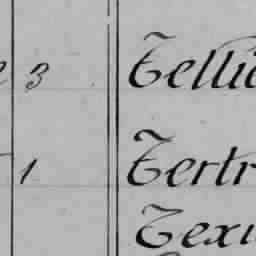 3 Telli
1 Tertr
Texi